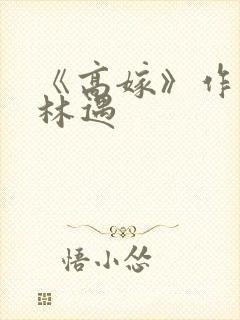 《高嫁》作
林遇
悟小怂